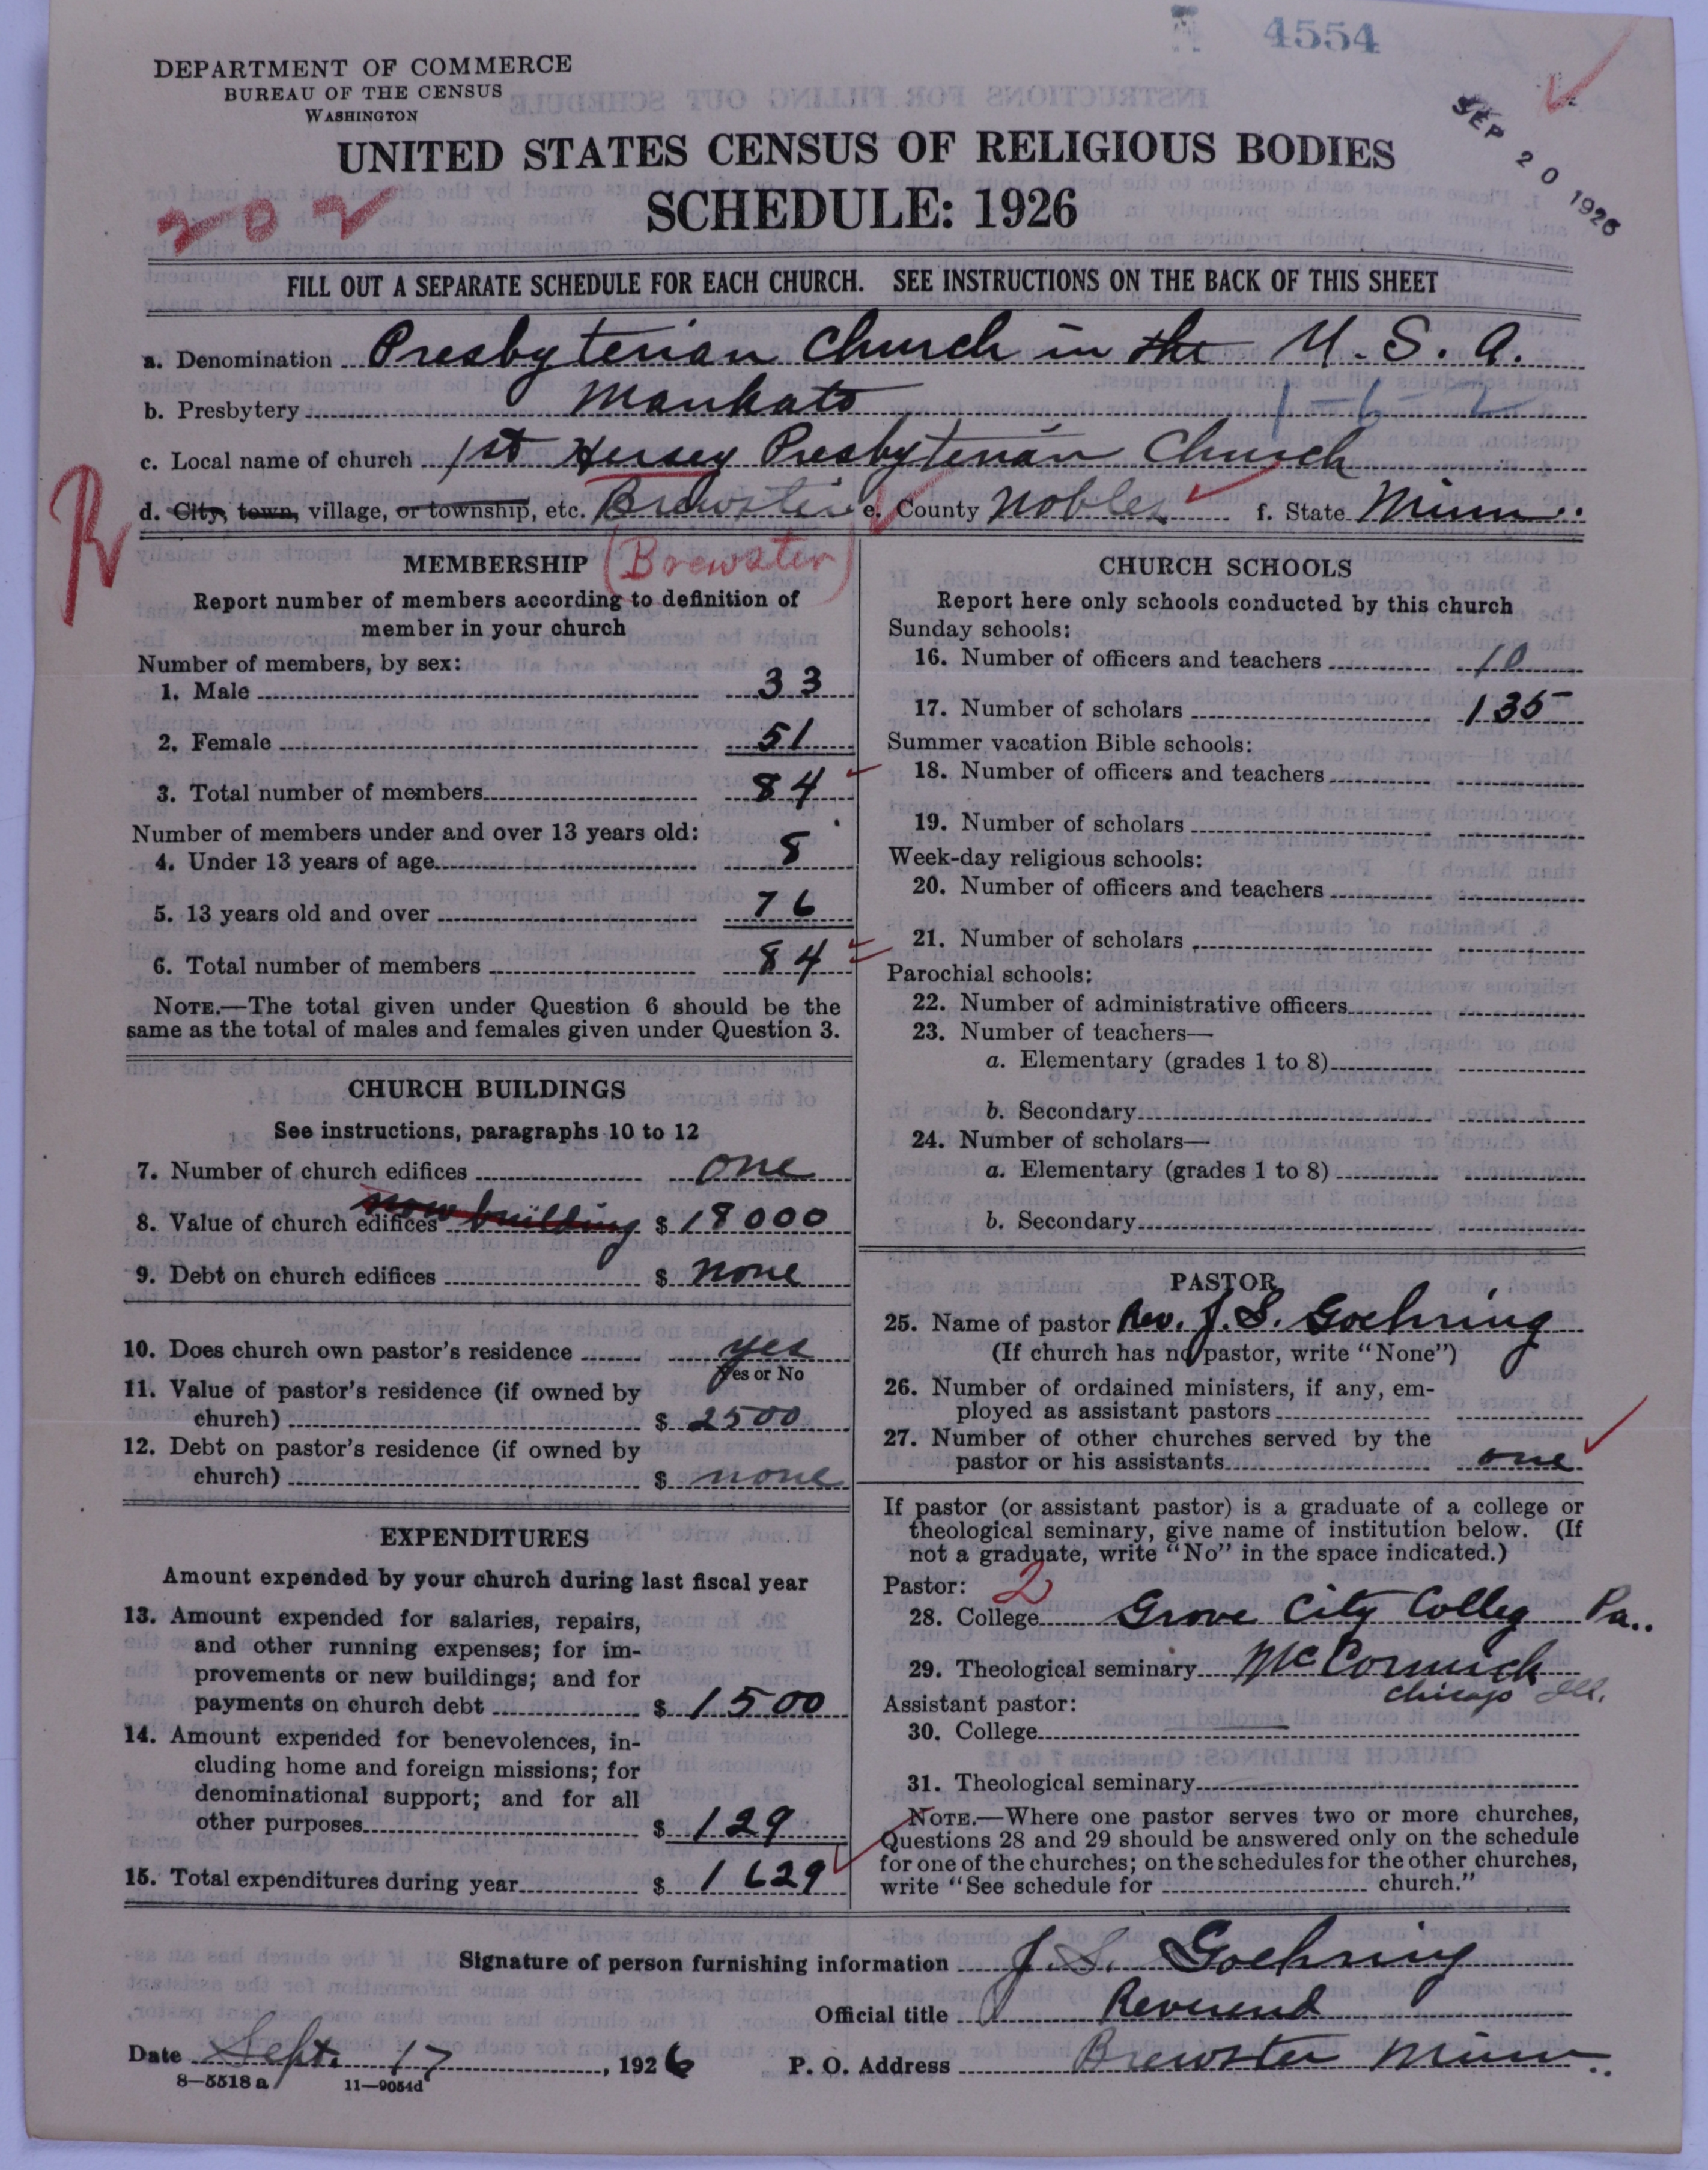 4554
DEPARTMENT OF COMMERCE
BUREAU OF THE CENSUS
WASHINGTON
SEP 20 1926
UNITED STATES CENSUS OF RELIGIOUS BODIES
SCHEDULE: 1926
202
FILL OUT A SEPARATE SCHEDULE FOR EACH CHURCH. SEE INSTRUCTIONS ON THE BACK OF THIS SHEET
a. Denomination Presbyterian Church in the U.S.A.
b. Presbytery Mankato 1-6-2
c. Local name of church 1st Hersey Presbyterian Church
R
d. City, town, village, or township, etc. Brewster e. County Nobles f. State Minn.
(Brewster)
MEMBERSHIP
Report number of members according to definition of
member in your church
Number of members, by sex:
1. Male 33
2. Female 51
3. Total number of members 84
Number of members under and over 13 years old:
4. Under 13 years of age 8
5. 13 years old and over 76
6. Total number of members 84
NOTE.—The total given under Question 6 should be the
same as the total of males and females given under Question 3.
CHURCH BUILDINGS
See instructions, paragraphs 10 to 12
7. Number of church edifices one
8. Value of church edifices now building $ 18000
9. Debt on church edifices $ none
10. Does church own pastor's residence yes
Yes or No
11. Value of pastor's residence (if owned by
church) $ 2500
12. Debt on pastor's residence (if owned by
church) $ none
EXPENDITURES
Amount expended by your church during last fiscal year
13. Amount expended for salaries, repairs,
and other running expenses; for im-
provements or new buildings; and for
payments on church debt $ 1500
14. Amount expended for benevolences, in-
cluding home and foreign missions; for
denominational support; and for all
other purposes $ 129
15. Total expenditures during year $ 1629
CHURCH SCHOOLS
Report here only schools conducted by this church
Sunday schools:
16. Number of officers and teachers 10
17. Number of scholars 135
Summer vacation Bible schools:
18. Number of officers and teachers
19. Number of scholars
Week-day religious schools:
20. Number of officers and teachers
21. Number of scholars
Parochial schools:
22. Number of administrative officers
23. Number of teachers—
a. Elementary (grades 1 to 8)
b. Secondary
24. Number of scholars—
a. Elementary (grades 1 to 8)
b. Secondary
PASTOR
25. Name of pastor Rev. J. S. Goehring
(If church has no pastor, write "None")
26. Number of ordained ministers, if any, em-
ployed as assistant pastors
27. Number of other churches served by the
pastor or his assistants one
If pastor (or assistant pastor) is a graduate of a college or
theological seminary, give name of institution below. (If
not a graduate, write "No" in the space indicated.)
Pastor: 2
28. College Grove City Colleg Pa.
29. Theological seminary McCormick
Chicago Ill.
Assistant pastor:
30. College
31. Theological seminary
NOTE.—Where one pastor serves two or more churches,
Questions 28 and 29 should be answered only on the schedule
for one of the churches; on the schedules for the other churches,
write "See schedule for church."
Signature of person furnishing information J. S. Goehring
Official title Reverend
Date Sept. 17, 1926 P. O. Address Brewster Minn.
8—5518 a 11—9054d